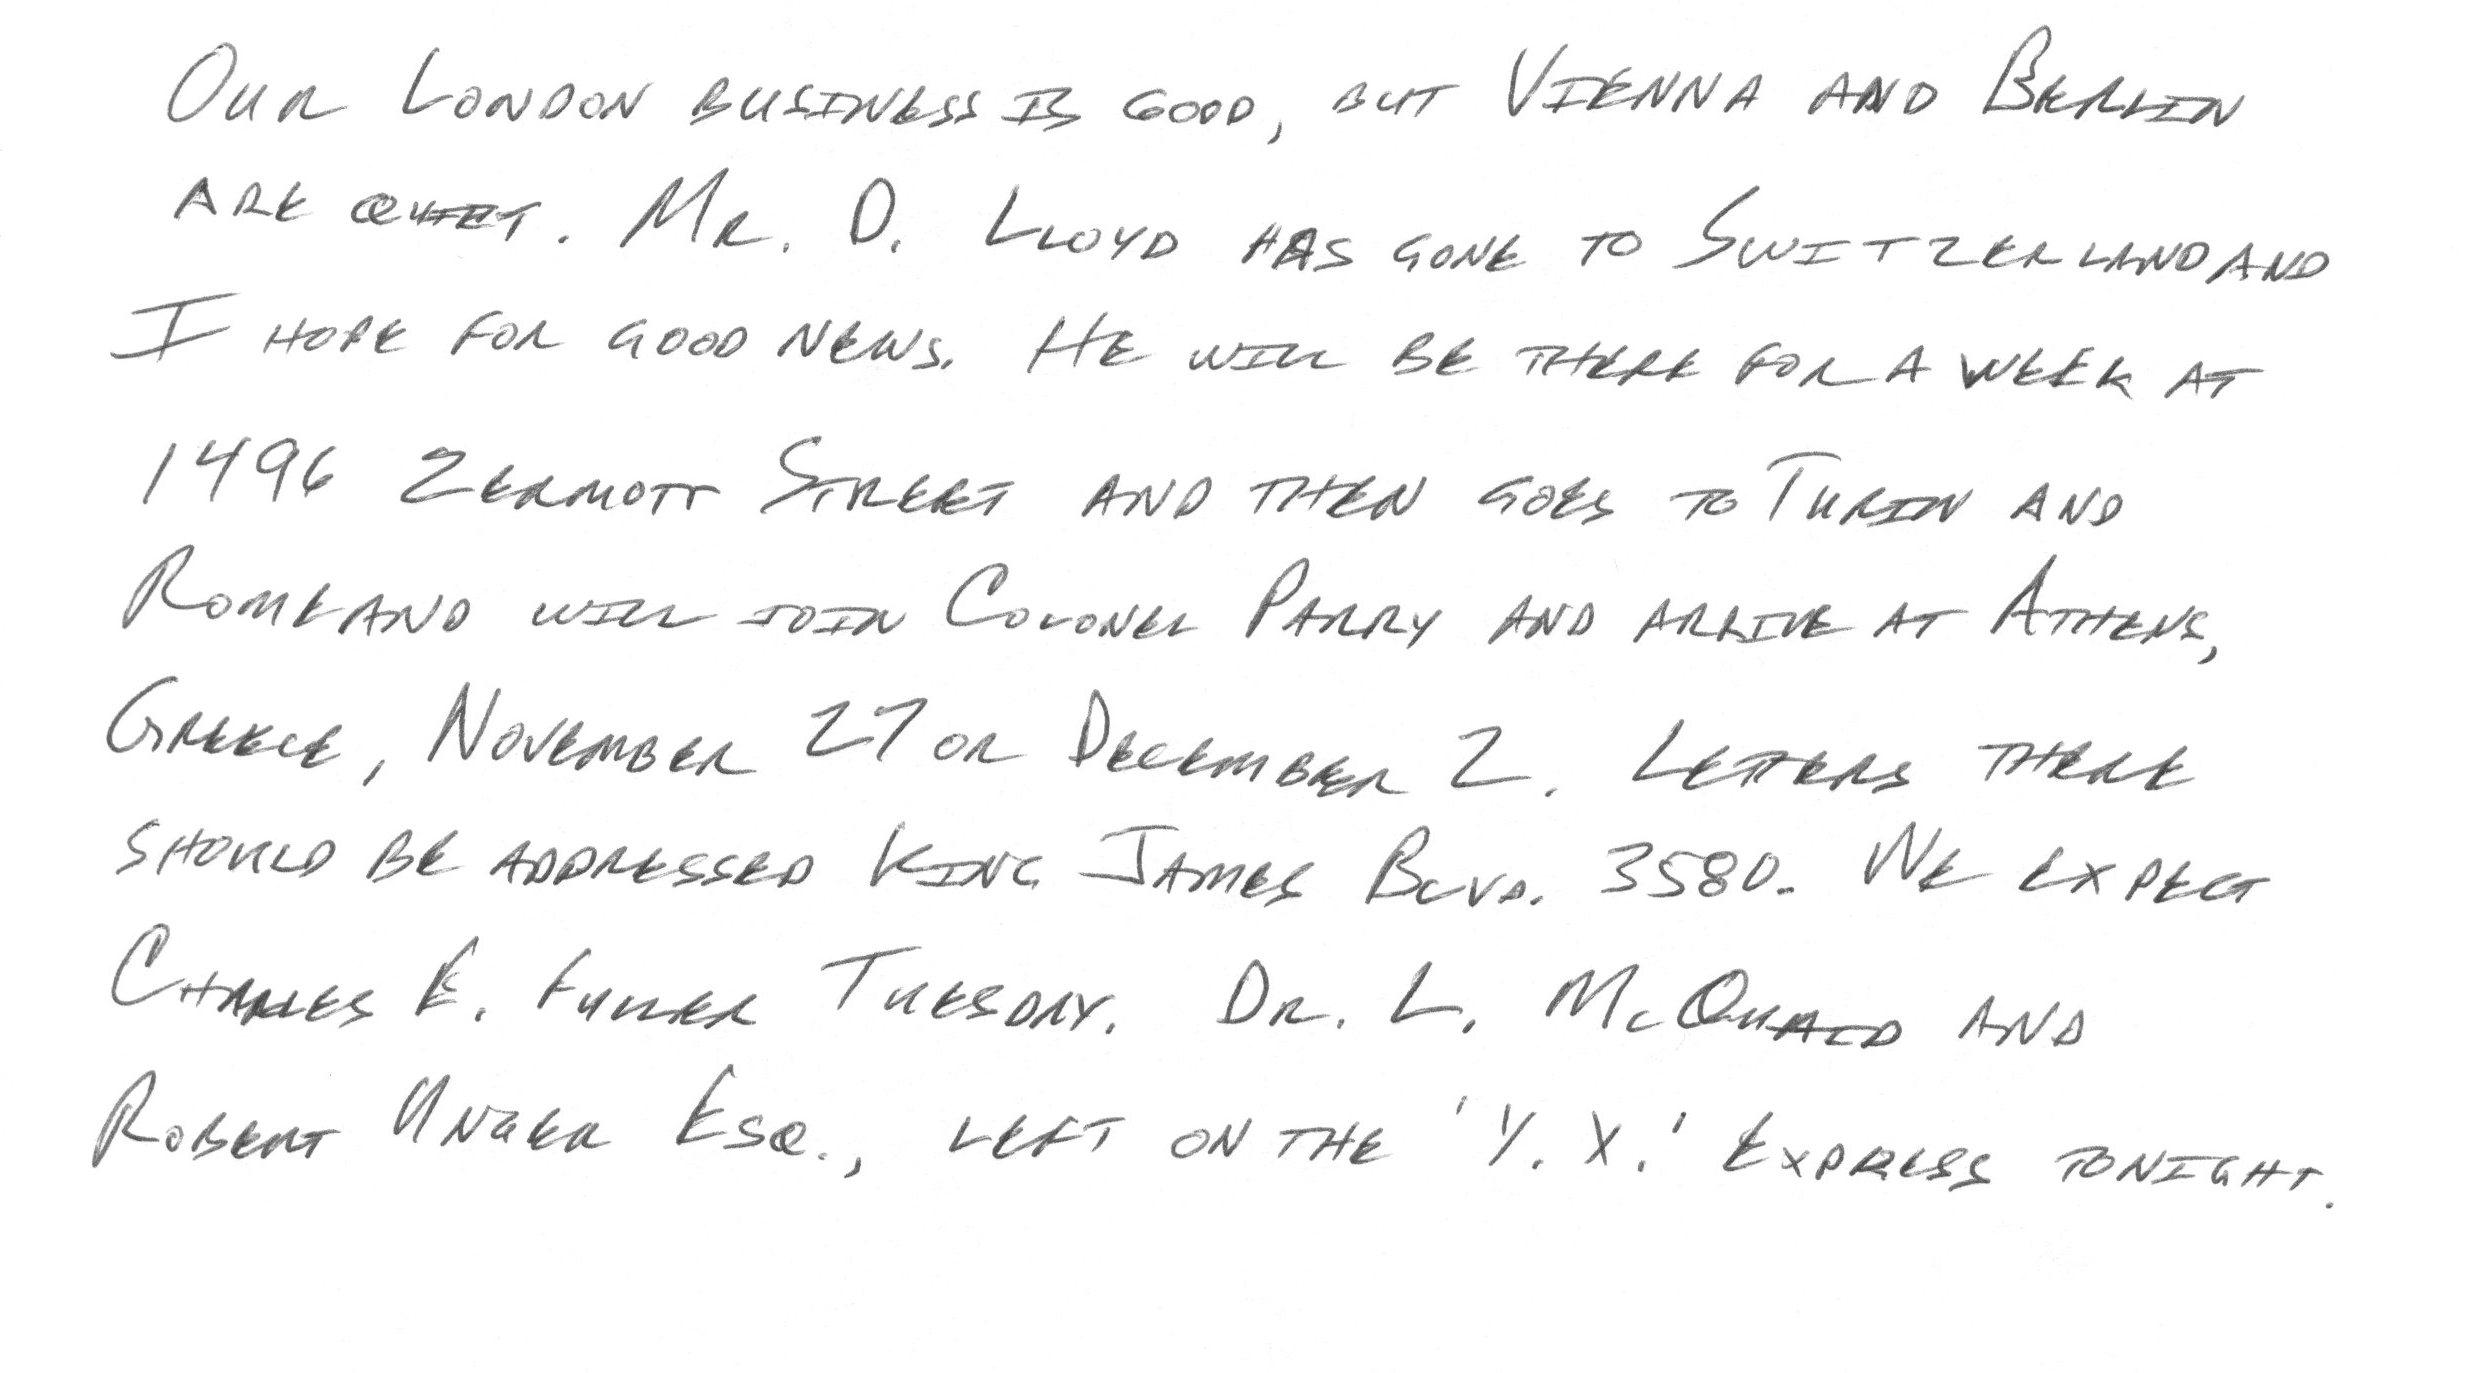 Our London business is good, but Vienna and Berlin
are quiet. Mr. D. Lloyd has gone to Switzerland and
I hope for good news. He will be there for a week at
1496 Zermott Street and then goes to Turin and
Rome and will join Colonel Parry and arrive at Athens,
Greece, November 27 or December 2. Letters there
should be addressed King James Blvd. 3580. We expect
Charles E. Fuller Tuesday. Dr. L. McQuaid and
Robert Unger Esq., left on the 'Y. X.' Express tonight.